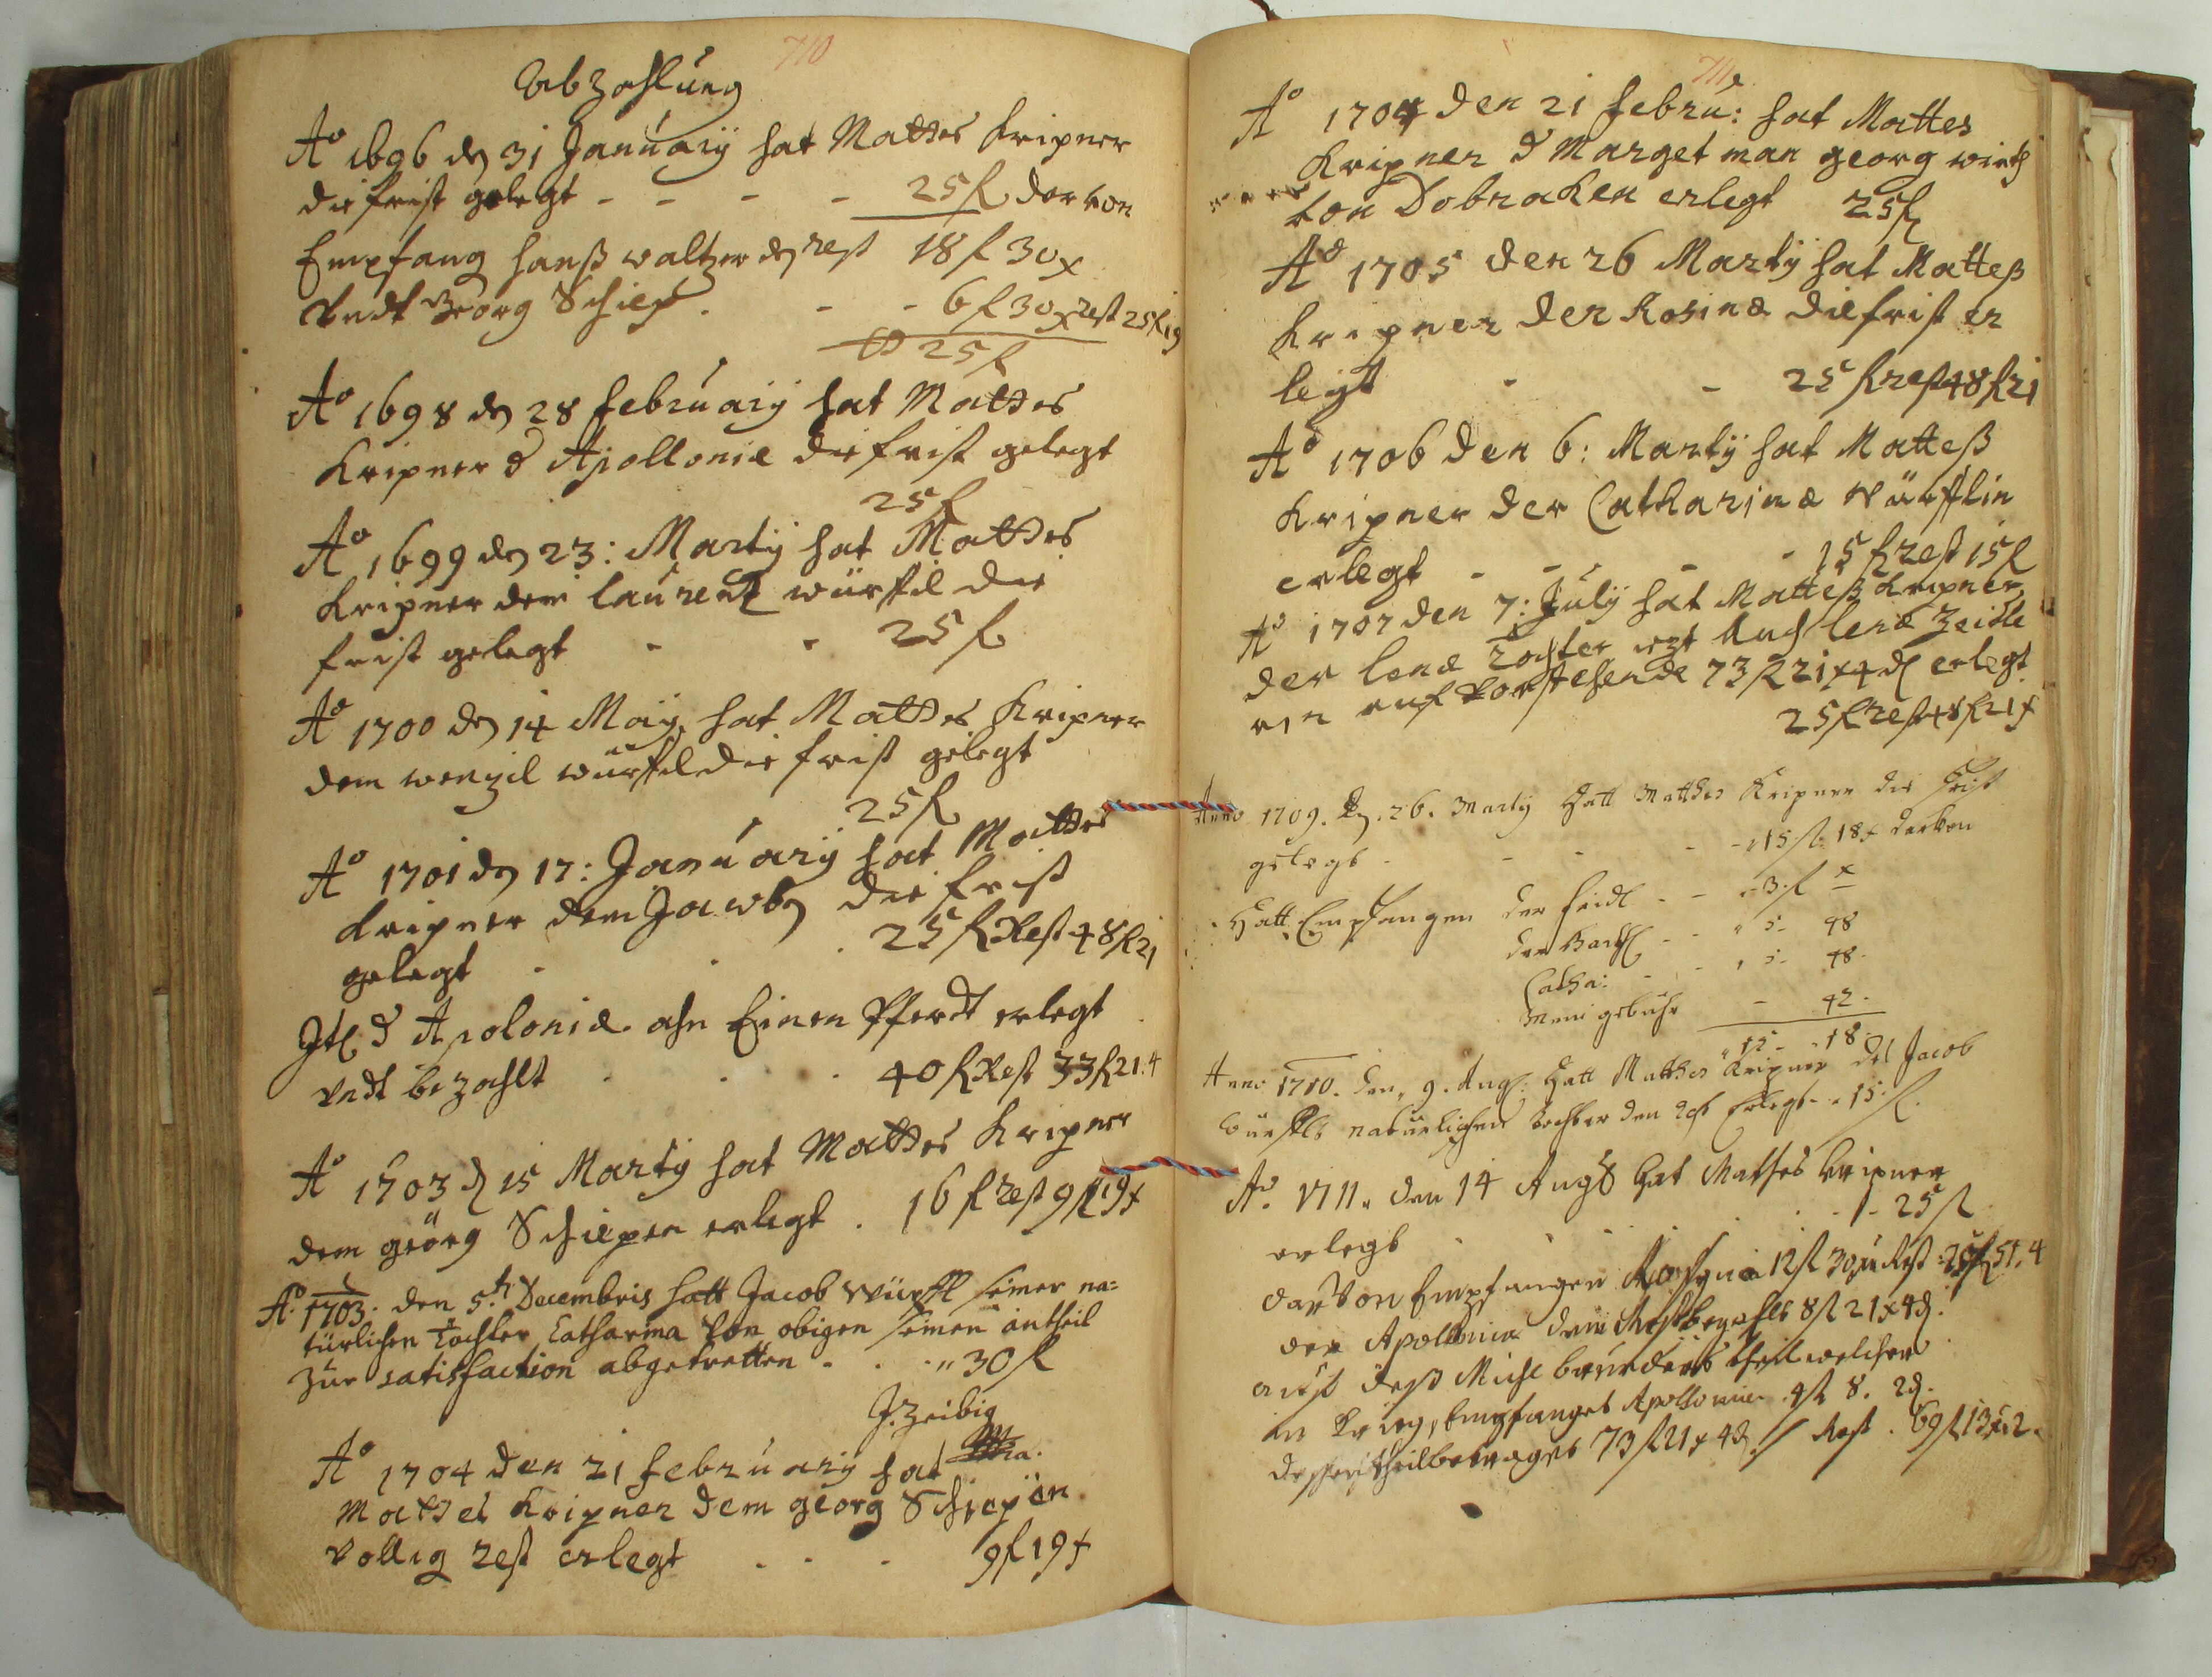 710
Abzahlung
Ao 1696 den 31 January hat Mattes Kripner
die frist gelegt - - - - 25 fl dervon
Empfang hanß waltzer den rest 18 fl 30 x
Vndt Georg Schiep . - - 6 fl 30 x rest 25 fl 19
25 fl
Ao 1698 den 28 february hat Mattes
Kripner d Apollonie die frist gelegt
25 fl
Ao 1699 den 23: Marty hat Mattes
Kripner dem laurentz würffel die
frist gelegt - - 25 fl
Ao 1700 den 14 May hat Mattes Kripner
dem wenzil würffel die frist gelegt
25 fl
Ao 1701 den 17: January hat Mattes
Kripner dem Jacoben die frist
gelegt - . . 25 fl Rest 48 fl 21
Itl d Apolonie ahn Einen Pferdt erlegt
Vndt bezahlt . . . 40 fl Rest 33 fl 21. 4
Ao 1703 d 15 Marty hat Mattes Kripner
dem geörg Schiepen erlegt . 16 fl rest 9 fl 19 x
Ao. 1703. den 5.t Decembris hatt Jacob Würffl seiner na=
türlichen Tochter Catharina Von obigen seinen antheil
zur satisfaction abgetretten - . . " 30 fl
J. Zeibig
Ao 1704 den 21 february hat
Mattes Kripner dem georg Schiepen
Vollig rest erlegt . . . 9 fl 19 x
711
Ao 1704 den 21 febru: hat Mattes
Kripner d Marget man georg wirth
Von Dobraken erlegt 25 fl
Ao 1705 den 26 Marty hat Matteß
Kripner der Rosina die frist er
legt - - 25 fl rest 48 fl 21
Ao 1706 den 6: Marty hat Matteß
Kripner der Catharina Würfflin
erlegt - - - - 15 fl rest 15 fl
Ao 1707 den 7: July hat Matteß Kripner
der lena Tochter Auch lena Zeidle
rin auf Vorstehende 73 fl 21 x 4 d erlegt
25 fl rest 48 fl 21 x
Anno 1709. den. 26. Marty Hatt Matthes Kripner die Frist
gelegt . - - - - 15 fl. 18 x darvon
Hatt Empfangen der - - " 3. fl x
der - - " 5- 48
Catha: - - " 5- 48.
gebühr - 42.
15 - " 18
Anno 1710. den, 9. Aug: Hatt Matthes Kripner des Jacob
Würffls natürlichen tochter den rest Erlegt - " 15 fl.
Ao. 1711. den 14 Aug hat Mathes Kripner
erlegt . . . . . - 25 fl
darvon Empfangen 12 fl 30 x Rest 51. 4
der Apollonia den Rest bezahlt 8 fl 21 x 4 d.
auß deß Michl brudern theil welcher
im Krieg, Empfanget Apollonia 4 fl 8. 2 d.
dessen theil betraget 73 fl 21 x 4 d. / Rest . 69 fl 13 x 2.